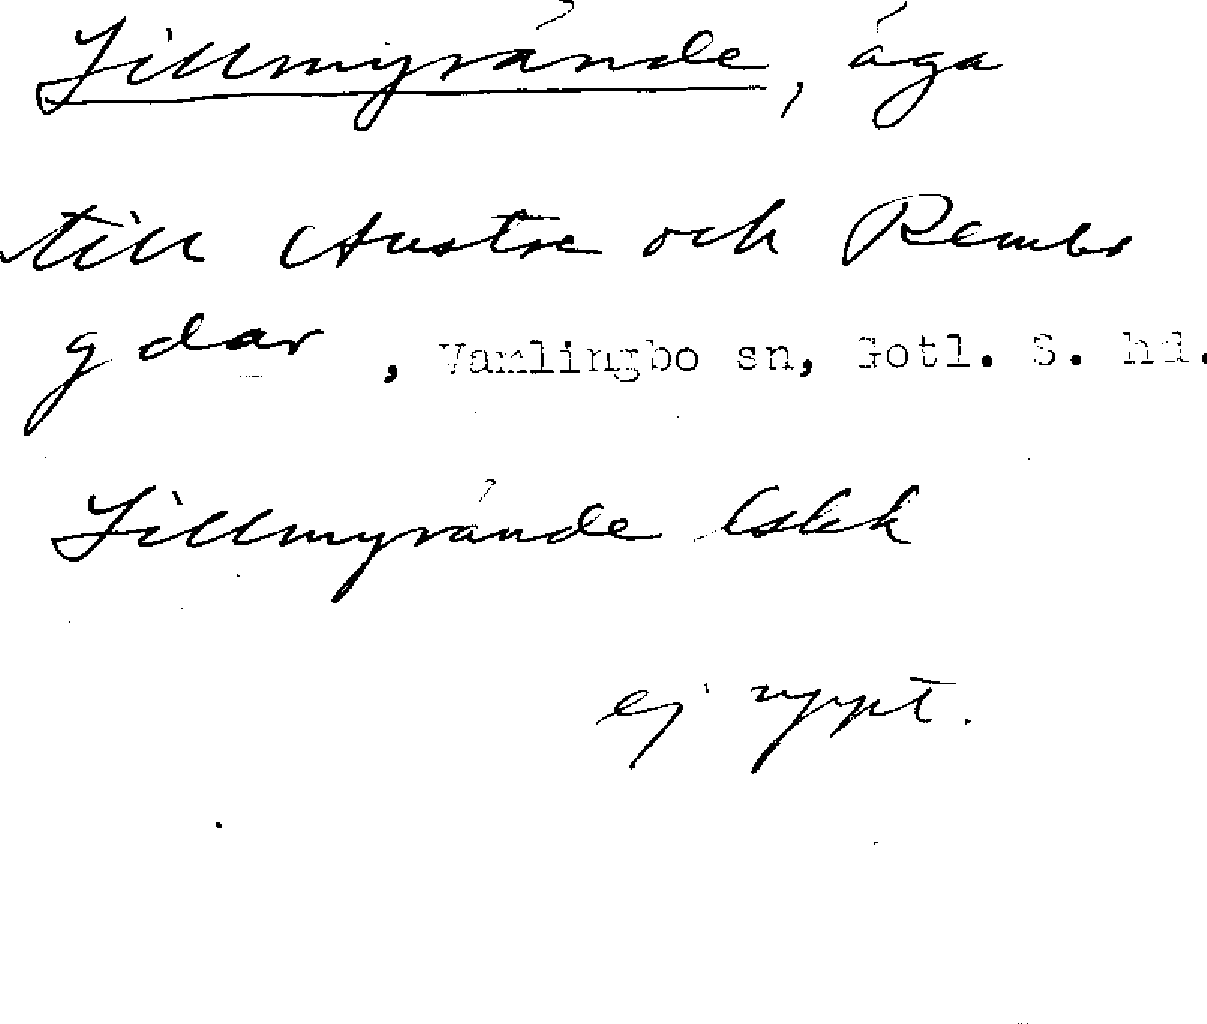 Lillmyrände, äga
till Austre och Rembs
gdar, Vamlingbo sn, Gotl. S. hd.
Lillmyrände lskk
ej uppt.